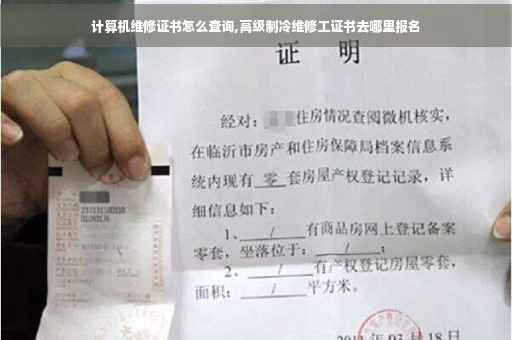 计算机维修证书怎么查询,高级制冷维修工证书去哪里报名
证 明
经对: 住房情况查阅微机核实,
在临沂市房产和住房保障局档案信息系
统内现有 零 套房屋产权登记记录,详
细信息如下:
1、 / 有商品房网上登记备案
零套,坐落位于: / ;
2、 / 有产权登记房屋零套,
面积: / 平方米。
03月18日